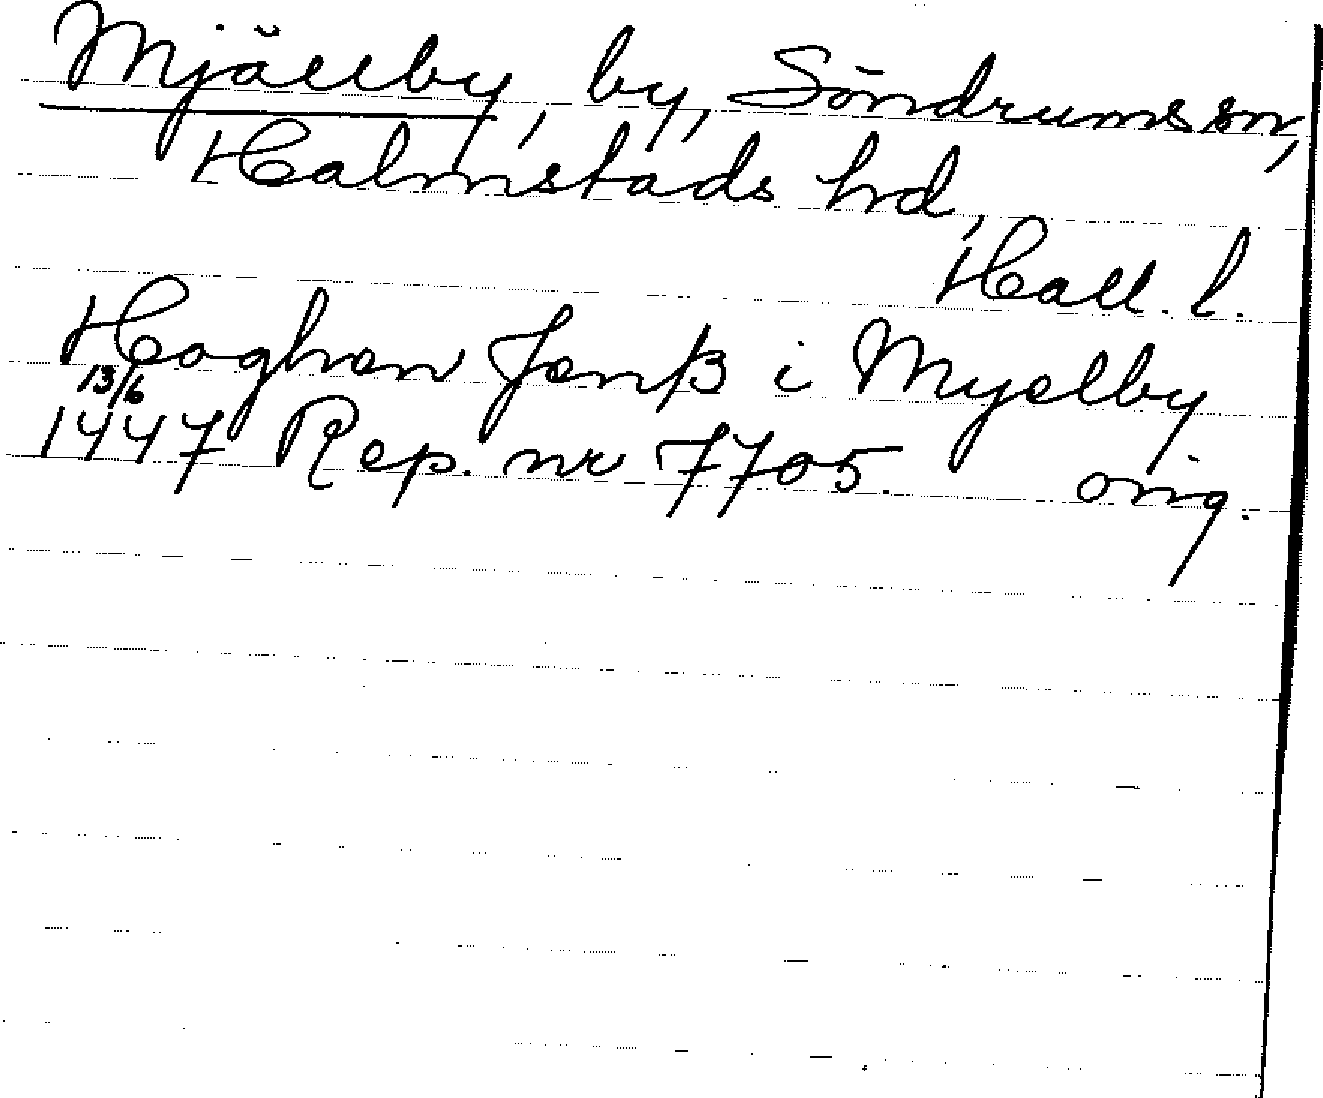 Mjällby, by, Söndrums sn,
Halmstads hd,
Hall. l.
Haghen Jenß i Myelby
13/6
1447 Rep. nr 7705. orig.